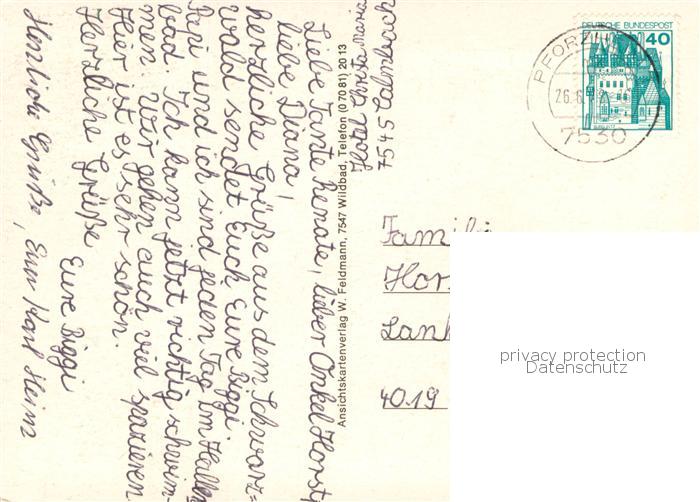 Liebe Tante Renate, lieber Onkel Horst,
liebe Diana!
Herzliche Grüße aus dem Schwarz=
wald sendet Euch Eure Biggi.
Papi und ich sind jeden Tag im Hallen
bad. Ich kann jetzt richtig schwim-
men. Wir gehen auch viel spazieren.
Hier ist es sehr schön.
Herzliche Grüße
Eure Biggi
Herzliche Grüße, Euer Karl Heinz
Ansichtskartenverlag W. Feldmann, 7547 Wildbad, Telefon (0 70 81) 20 13
Hotel
7545 Calmbach
DEUTSCHE BUNDESPOST
40
PFORZH
26.6.
7530
Familie
Hors
Lan
4019
privacy protection
Datenschutz